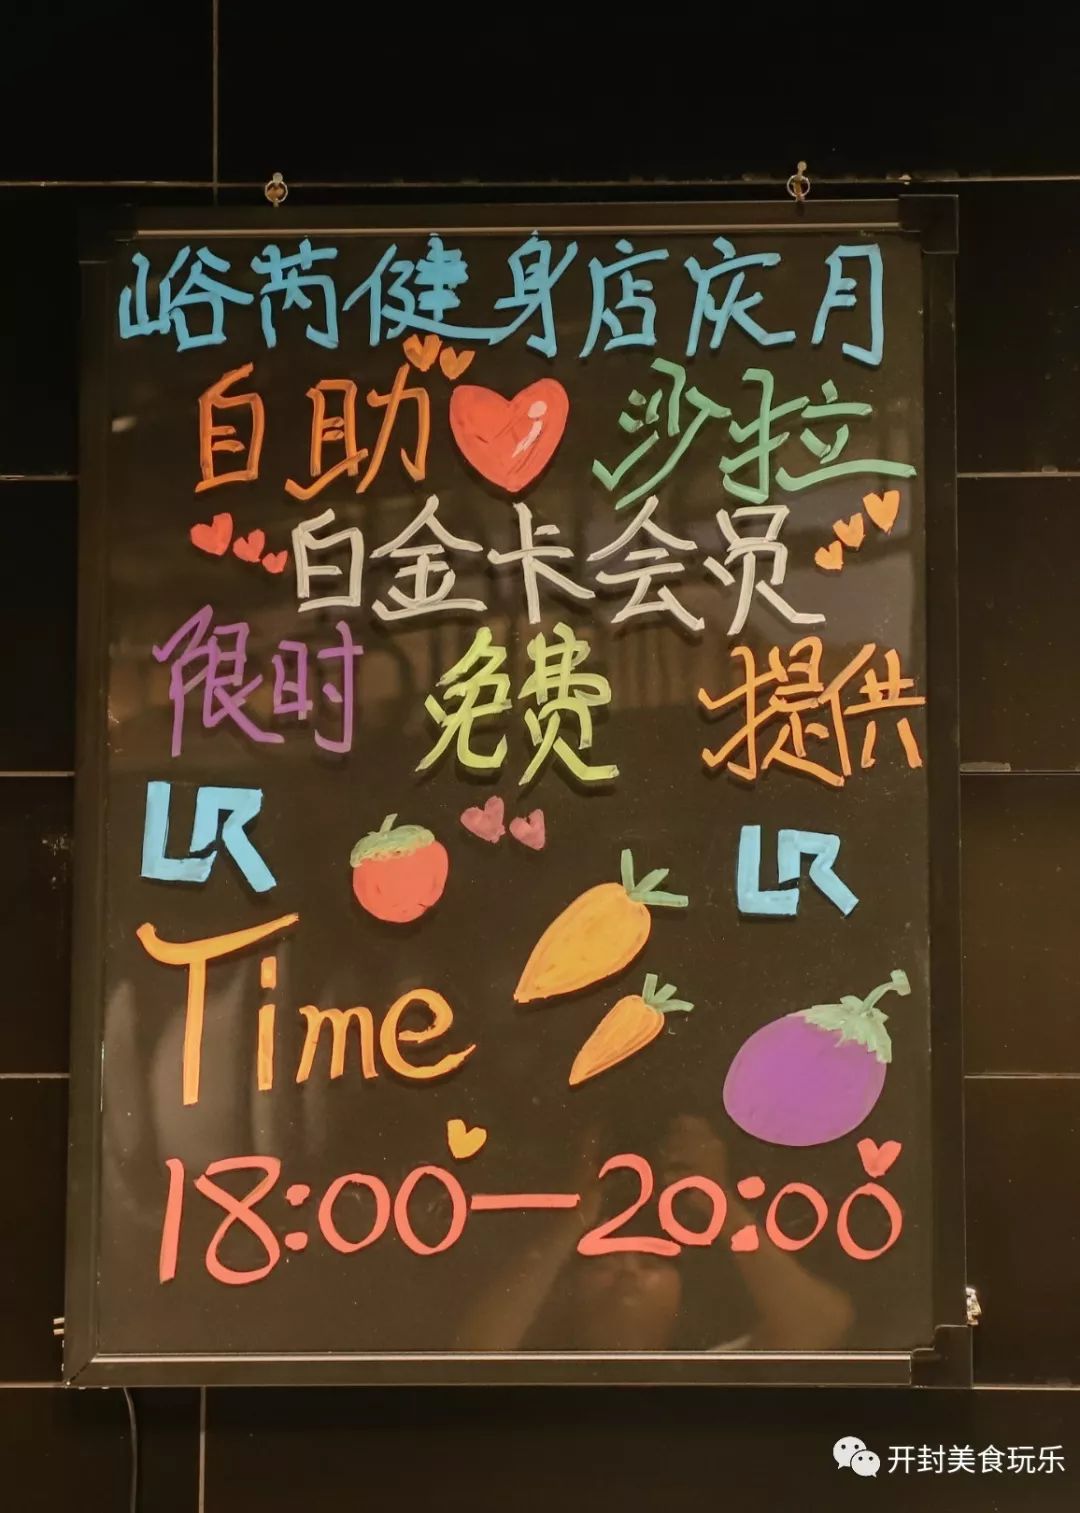 峪芮健身店庆月
自助 沙拉
白金卡会员
限时 免费 提供
LR LR
Time
18:00—20:00
开封美食玩乐